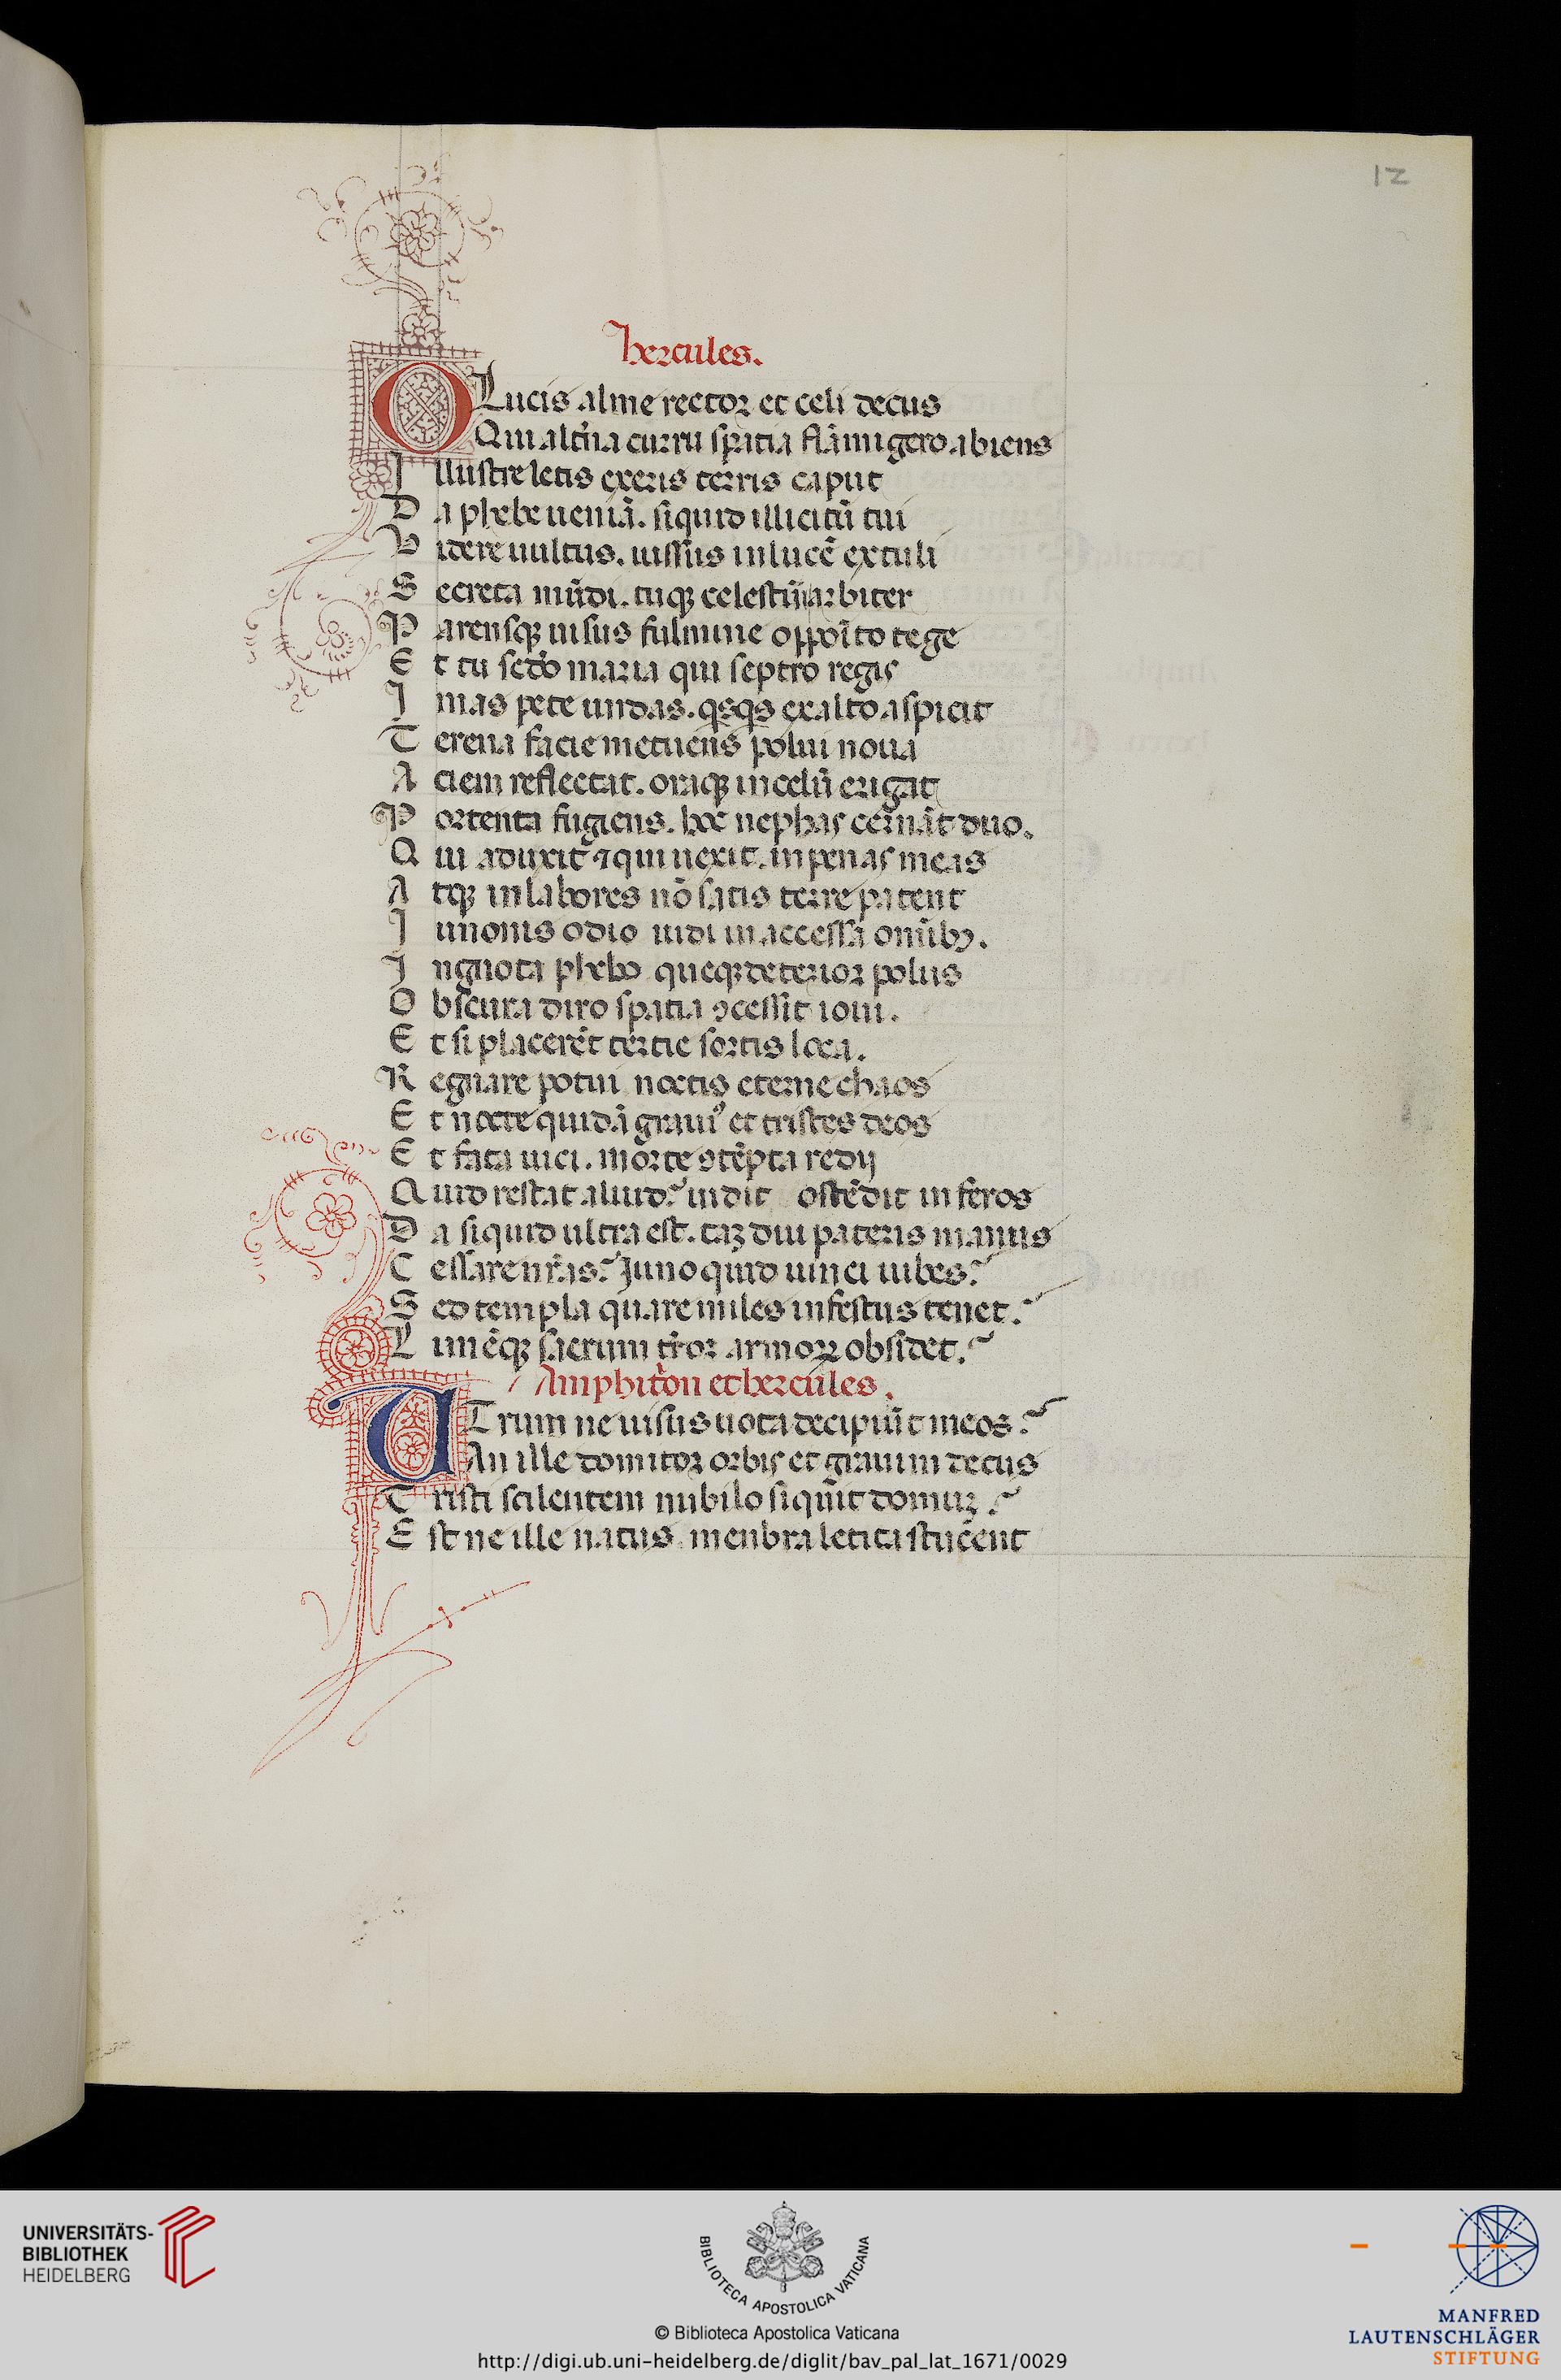 12
hercules.
O Lucis alme rector et celi decus
Qui alt'na curru spatia flāmigero abiens
Illustre letis exeris terris caput
Da phebe ueniā. siquid illicitū tui
Videre uultus. iussus inlucē extuli
Secreta mūdi. tuqȝ celestū arbiter
Parensqȝ uisus fulmine opposito tege
Et tu secdo maria qui septro regis
Imas pete undas. qsqs exalto aspicit
Terena facie metuens polui noua
Aciem reflectat. oraqȝ incelū erigat
Portenta fugiens. hoc nephas cernāt duo.
Qui aduxit ⁊ qui uexit. inpenas meas
Atqȝ inlabores nō satis terre patent
Iunonis odio uidi inaccessa omībꝫ.
Ingnota phebo queqȝ deterior polus
Obscura diro spatia ꝯcessit ioui.
Et si placerēt tertie sortis loca.
Regnare potui noctis eterne chaos
Et nocte quidā grauiꝰ et tristes deos
Et fata uici. morte ꝯtēpta redij
Quid restat aliud? uidit ostēdit inferos
Da siquid ultra est. taȝ diu pateris manus
Cessare nr̄as? Juno quid uinci iubes?
Sed templa quare miles infestus tenet?
Limēqȝ sacrum tr̄or armoꝝ obsidet?
Amphit'on et hercules.
UTrum ne uisus uota decipiūt meos?
An ille domitor orbis et graium decus
Tristi scilentem nubilo siquit domuȝ?
Est ne ille natus menbra letita stucent
UNIVERSITÄTS-
BIBLIOTHEK
HEIDELBERG
BIBLIOTECA APOSTOLICA VATICANA
© Biblioteca Apostolica Vaticana
http://digi.ub.uni-heidelberg.de/diglit/bav_pal_lat_1671/0029
MANFRED
LAUTENSCHLÄGER
STIFTUNG